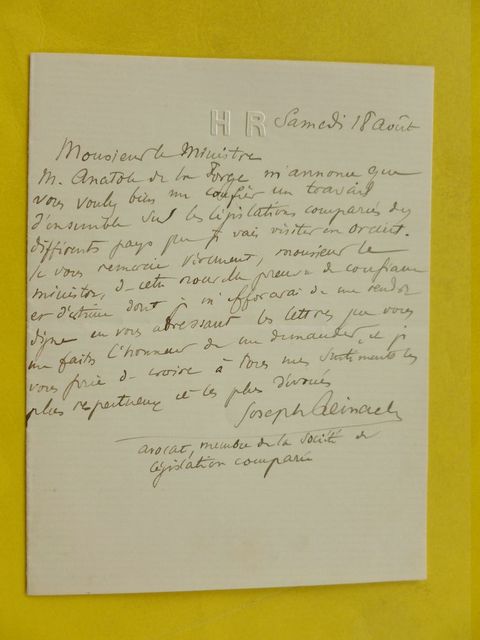 HR
Samedi 18 août
Monsieur le Ministre
M. Anatole de la Forge m'annonce que
vous voulez bien me confier un travail
d'ensemble sur les législations comparées des
différents pays que je vais visiter en Orient.
Je vous remercie vivement, monsieur le
ministre, de cette nouvelle preuve de confiance
et d'estime dont je m'efforcerai de me rendre
digne en vous adressant les lettres que vous
me faites l'honneur de me demander, et je
vous prie de croire à tous mes sentiments les
plus respectueux et les plus dévoués
Joseph Reinach
avocat, membre de la Société de
législation comparée